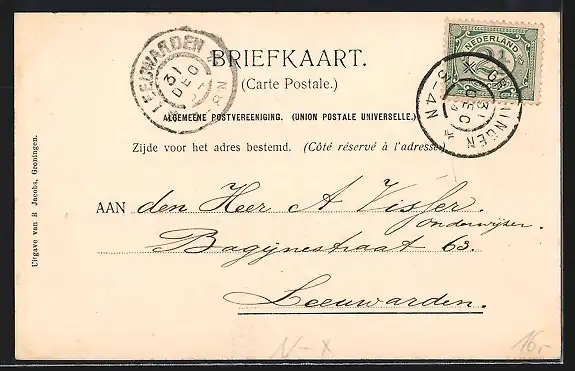 LEEUWARDEN
31 DEC
8N
NEDERLAND
2½
GRONINGEN
31 DEC
5-4N
BRIEFKAART.
(Carte Postale.)
ALGEMEENE POSTVEREENIGING. (UNION POSTALE UNIVERSELLE.)
Zijde voor het adres bestemd. (Côté réservé à l'adresse.)
AAN den Heer A Visser.
onderwijzer.
Bagijnestraat 63.
Leeuwarden.
Uitgave van B Jacobs, Groningen.
N-X
16,-